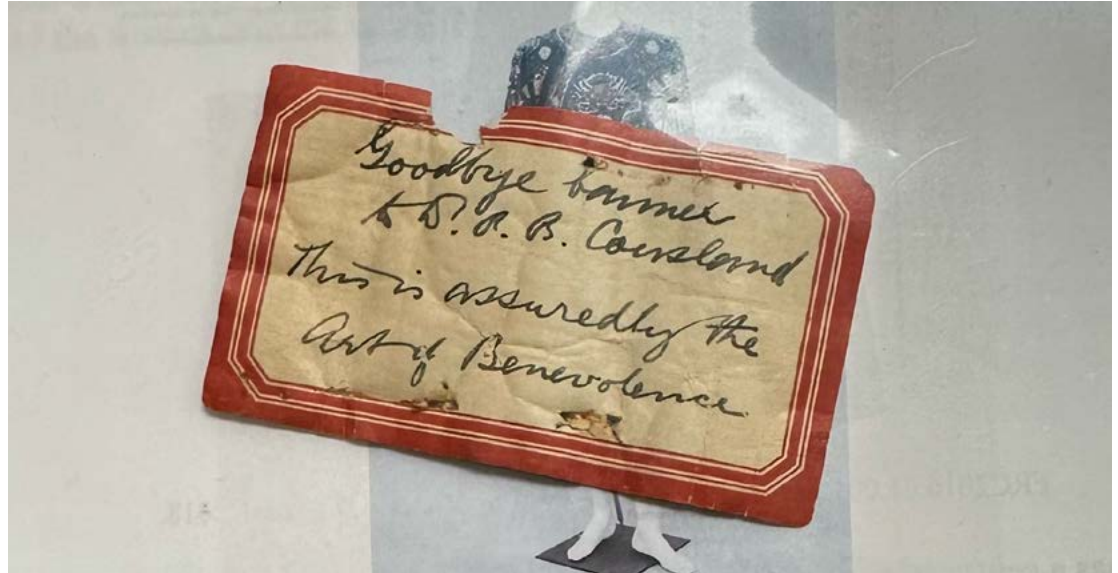 Goodbye banner
to D. P. B. Cousland
This is assuredly the
Art of Benevolence